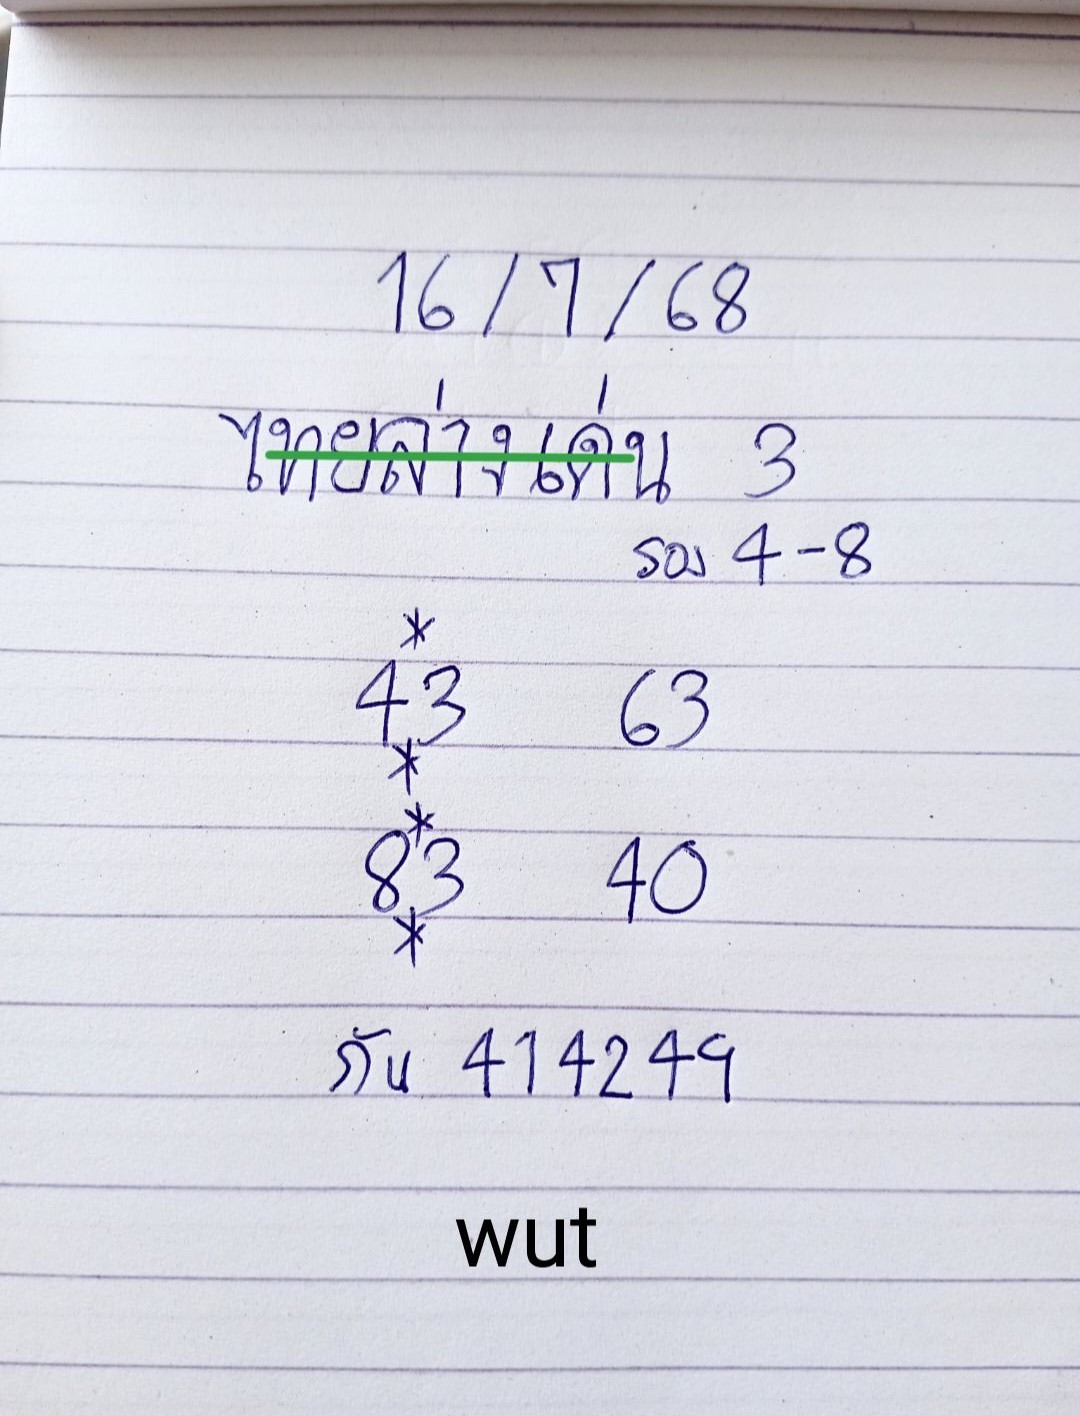 16/7/68
ไทยล่างเด่น 3
รอง 4-8
*
43 63
*
*
83 40
*
กัน 414249
wut